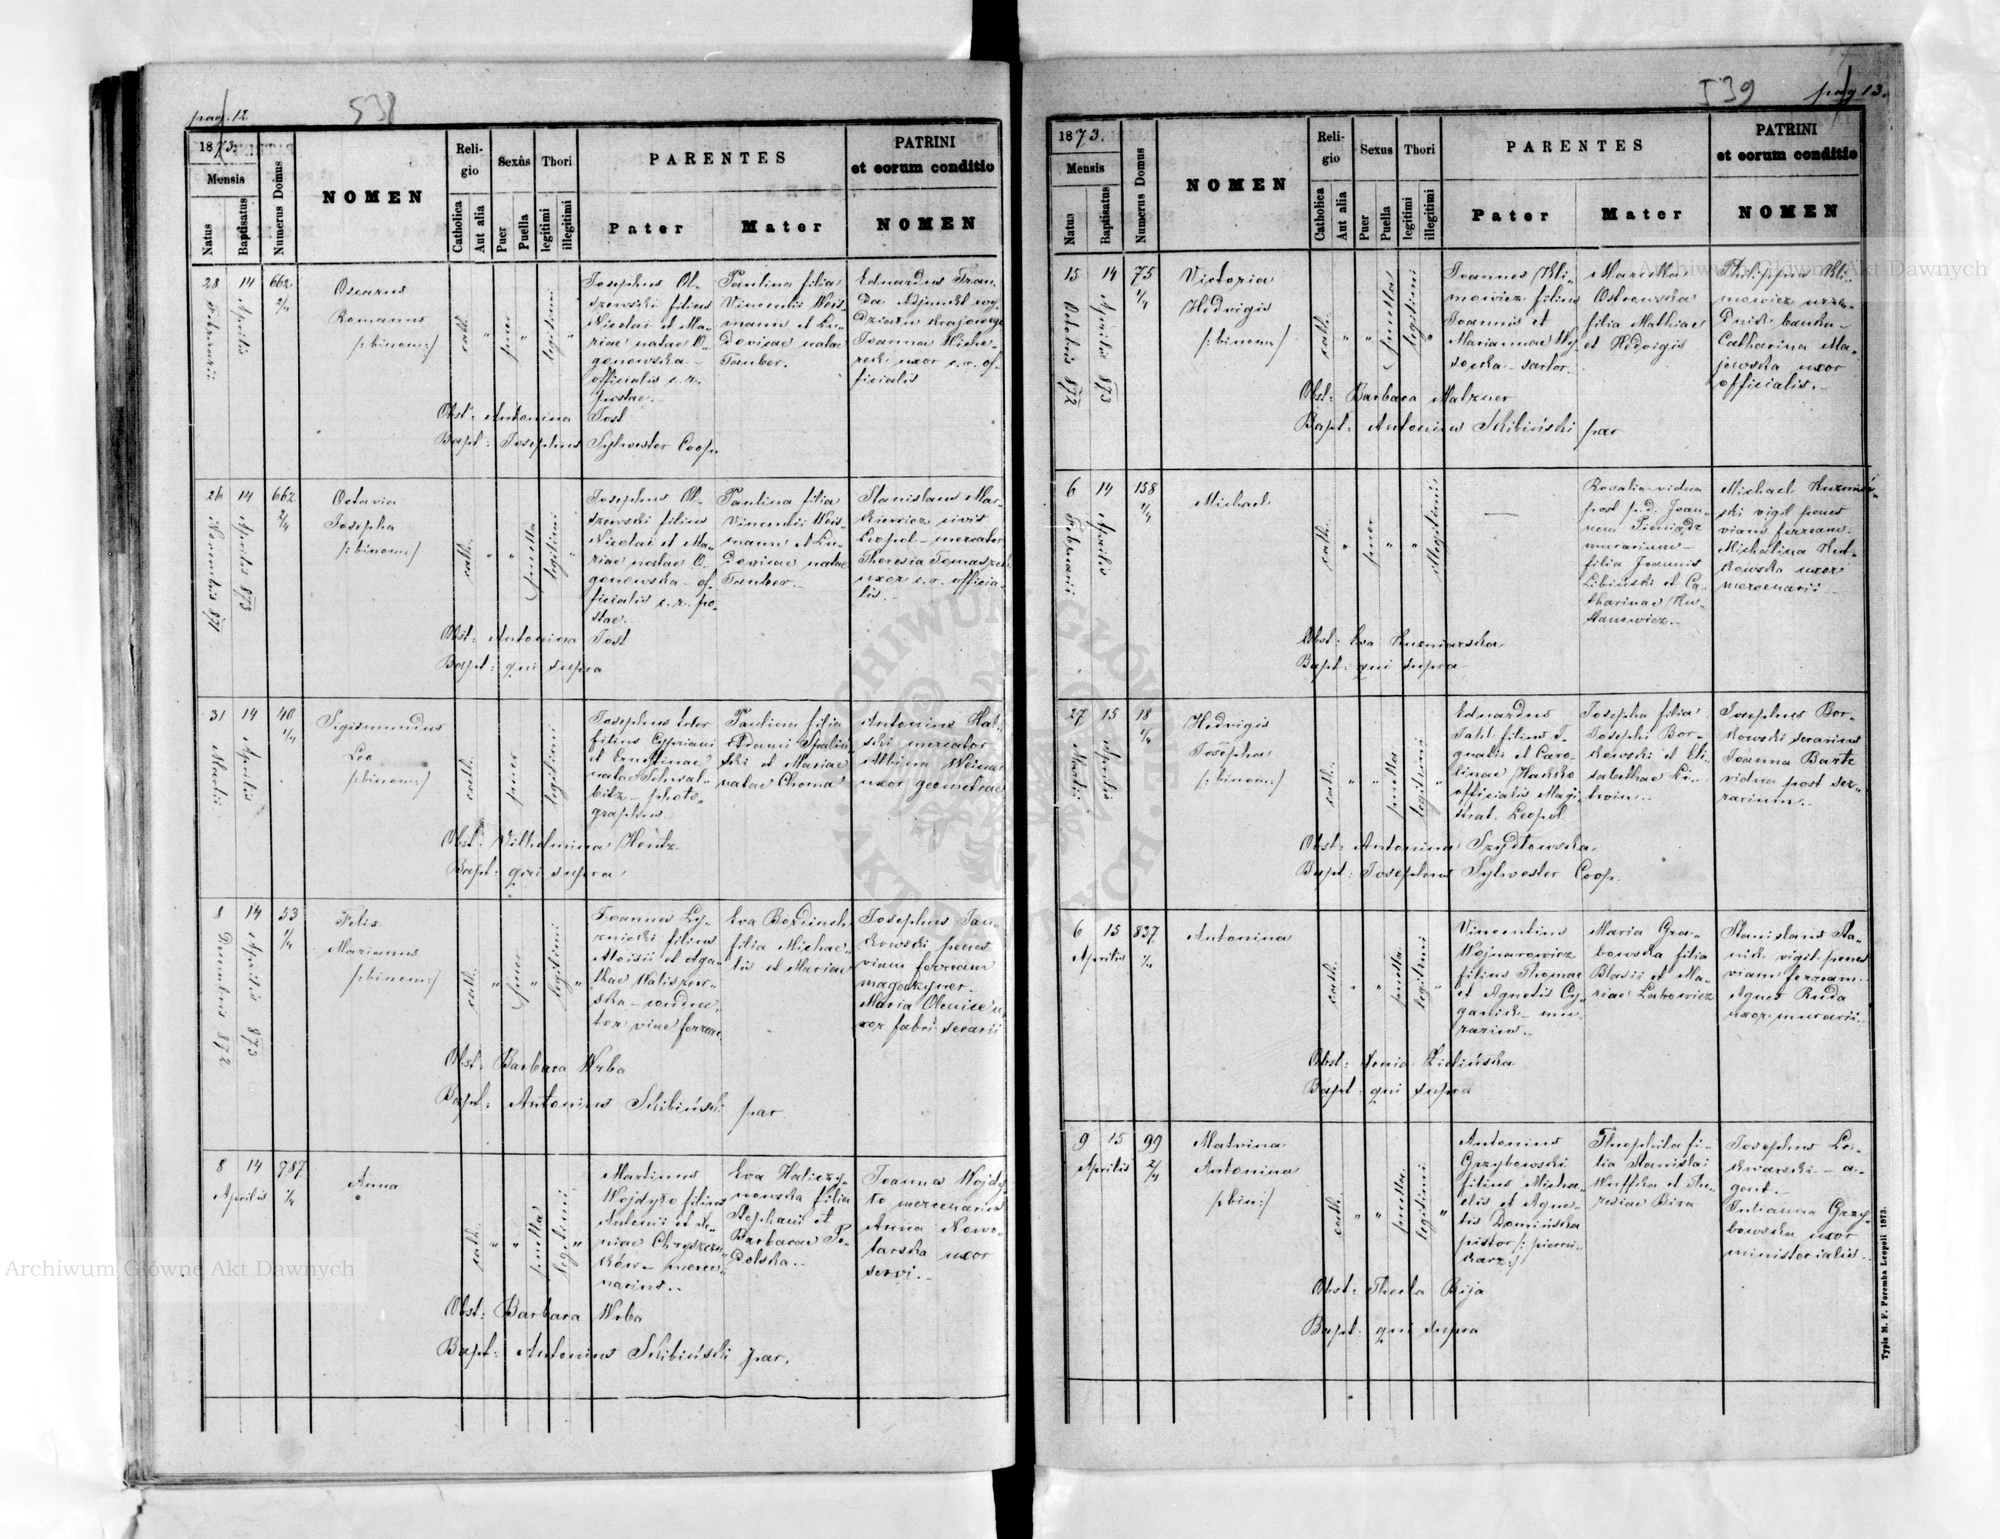 pag. 12
538
1873.
Mensis
Natus
Baptisatus
Numerus Domus
NOMEN
Reli-
gio
Catholica
Aut alia
Sexus
Puer
Puella
Thori
legitimi
illegitimi
PARENTES
Pater
Mater
PATRINI
et eorum conditio
NOMEN
28 Februarii
14 Aprilis
662 2/4
Oscarus
Romanus
/:binom:/
cath.
puer
legitimi
Josephus Ol-
szewski filius
Nicolai et Ma-
riae natae O-
gonowska
officialis c.r.
postae.
Paulina filia
Vincentii Weis-
mann et Lu-
dovicae natae
Tauber.
Eduardus Fran-
da Adjunkt wy-
działu krajowego
Joanna
uxor c.r. of-
ficialis
Obst: Antonina Jost
Bapt: Josephus Sylvester Coop.
26 Novembris 871
14 Aprilis 873
662 2/4
Octavia
Josepha
/:binom:/
cath.
puella
legitimi
Josephus Ol-
szewski filius
Nicolai et Ma-
riae natae O-
gonowska of-
ficialis c.r. po-
stae.
Paulina filia
Vincentii Weis-
mann et Lu-
dovicae natae
Tauber.
Stanislaus Mar-
kiewicz civis
Leopol. mercator
Theresia
uxor c.r. officia-
lis.
Obst: Antonina Jost
Bapt: qui supra
31 Martii
14 Aprilis
40 1/4
Sigismundus
Leo
/:binom:/
cath.
puer
legitimi
Josephus Eder
filius Cypriani
et Ernestinae
natae
photo-
graphus.
Paulina filia
Adami
ski et Mariae
natae Choma
Antonius
ski mercator
Albina
uxor geometrae
Obst: Wilhelmina Hentz
Bapt: qui supra
8 Decembris 872
14 Aprilis 873
53 1/4
Felix
Marianus
/:binom:/
cath.
puer
legitimi
Joannes Ły-
filius
Aloisii et Aga-
thae Waliszew-
ska conduc-
tor viae ferreae
Eva
filia Michae-
lis et Mariae
Josephus Jan-
kowski penes
viam ferream
magazynier
Maria
uxor fabri serarii
Obst: Barbara Wrba
Bapt: Antonius Skibiński par.
8
Aprilis
14
787 1/4
Anna
cath.
puella
legitimi
Martinus
Wojdyło filius
Antonii et
merce-
narius.
Eva Haliczy-
nowska filia
Stephani et
Barbarae Po-
dolska.
Joannes Wojdy-
ło mercenarius
Anna Nowo-
tarska uxor
servi.
Obst: Barbara Wrba
Bapt: Antonius Skibiński par.
539
pag 13.
1873.
Mensis
Natus
Baptisatus
Numerus Domus
NOMEN
Reli-
gio
Catholica
Aut alia
Sexus
Puer
Puella
Thori
legitimi
illegitimi
PARENTES
Pater
Mater
PATRINI
et eorum conditio
NOMEN
15 Octobris 872
14 Aprilis 873
75 1/4
Victoria
Hedvigis
/:binom:/
cath.
puella
legitimi
Joannes Kli-
mowicz filius
Joannis et
Mariannae Wy-
socka sartor.
Marcella
Ostrowska
filia Mathiae
et Hedvigis
Philippus Kli-
mowicz urzę-
dnik banku
Catharina Ma-
jewska uxor
officialis.
Obst: Barbara Malzner
Bapt: Antonius Skibiński par
6 Februarii
14 Aprilis
158 1/4
Michael
cath.
puer
illegitimi
Rosalia vidua
post p.d. Joan-
nem Pieniądz
murarium
filia Joannis
Libiński et Ca-
tharinae
Michael
ski vigil penes
viam ferream.
Michalina Rut-
kowska uxor
mercenarii.
Obst: Eva Kuzniarska
Bapt: qui supra
27 Martii
15 Aprilis
18 1/4
Hedvigis
Josepha
/:binom:/
cath.
puella
legitimi
Eduardus
filius I-
gnatii et Caro-
linae
officialis Magi-
strat. Leopol.
Josepha filia
Josephi Bor-
kowski et Eli-
sabethae Li-
twin.
Josephus Bor-
kowski serarius
Joanna Bartz
vidua post ser-
rarium.
Obst: Antonina Szydłowska
Bapt: Josephus Sylvester Coop.
6
Aprilis
15
837 1/4
Antonina
cath.
puella
legitimi
Vincentius
Wojnarowicz
filius Thomae
et Agnetis Cy-
ganick mu-
rarius.
Maria Gra-
bowska filia
Blasii et Ma-
riae Labowicz
Stanislaus Sta-
nick vigil penes
viam ferream.
Agnes Ruda
uxor murarii.
Obst: Anna Zielińska
Bapt: qui supra
9
Aprilis
15
99 2/4
Malvina
Antonina
/:bin:/
cath.
puella
legitimi
Antonius
Grzybowski
filius Micha-
elis et Agne-
tis Domińska
pistor /:pierni-
karz:/
Theophila fi-
lia Stanislai
et The-
resiae Biza
Josephus Le-
kwarski a-
gent.
Julianna Grzy-
bowska uxor
ministerialis.
Obst: Thecla Bija
Bapt: qui supra
Typis M. F. Poremba Leopoli 1873.
Archiwum Główne Akt Dawnych
Archiwum Główne Akt Dawnych
ARCHIWUM GŁÓWNE AKT DAWNYCH